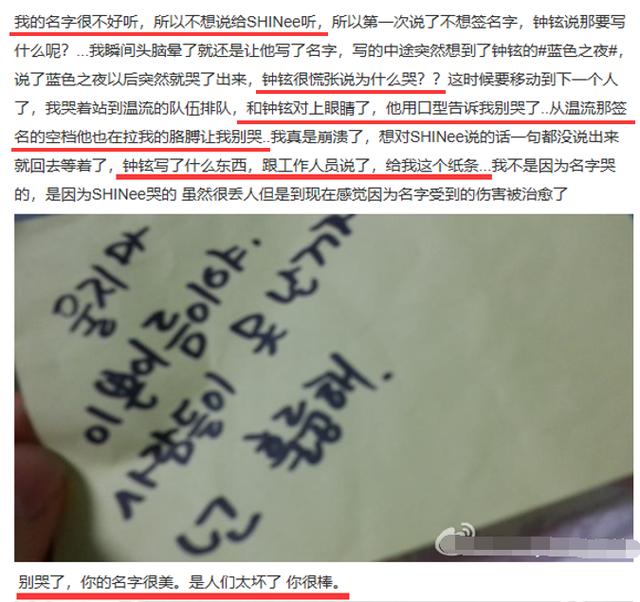 我的名字很不好听，所以不想说给SHINee听，所以第一次说了不想签名字，钟铉说那要写
什么呢？...我瞬间头脑晕了就还是让他写了名字，写的中途突然想到了钟铉的#蓝色之夜#，
说了蓝色之夜以后突然就哭了出来，钟铉很慌张说为什么哭？？这时候要移动到下一个人
了，我哭着站到温流的队伍排队，和钟铉对上眼睛了，他用口型告诉我别哭了..从温流那签
名的空档他也在拉我的胳膊让我别哭..我真是崩溃了，想对SHINee说的话一句都没说出来
就回去等着了，钟铉写了什么东西，跟工作人员说了，给我这个纸条...我不是因为名字哭
的，是因为SHINee哭的 虽然很丢人但是到现在感觉因为名字受到的伤害被治愈了
울지마
이쁜이름이야.
사람들이 못난거
훌륭해.
别哭了，你的名字很美。是人们太坏了 你很棒。